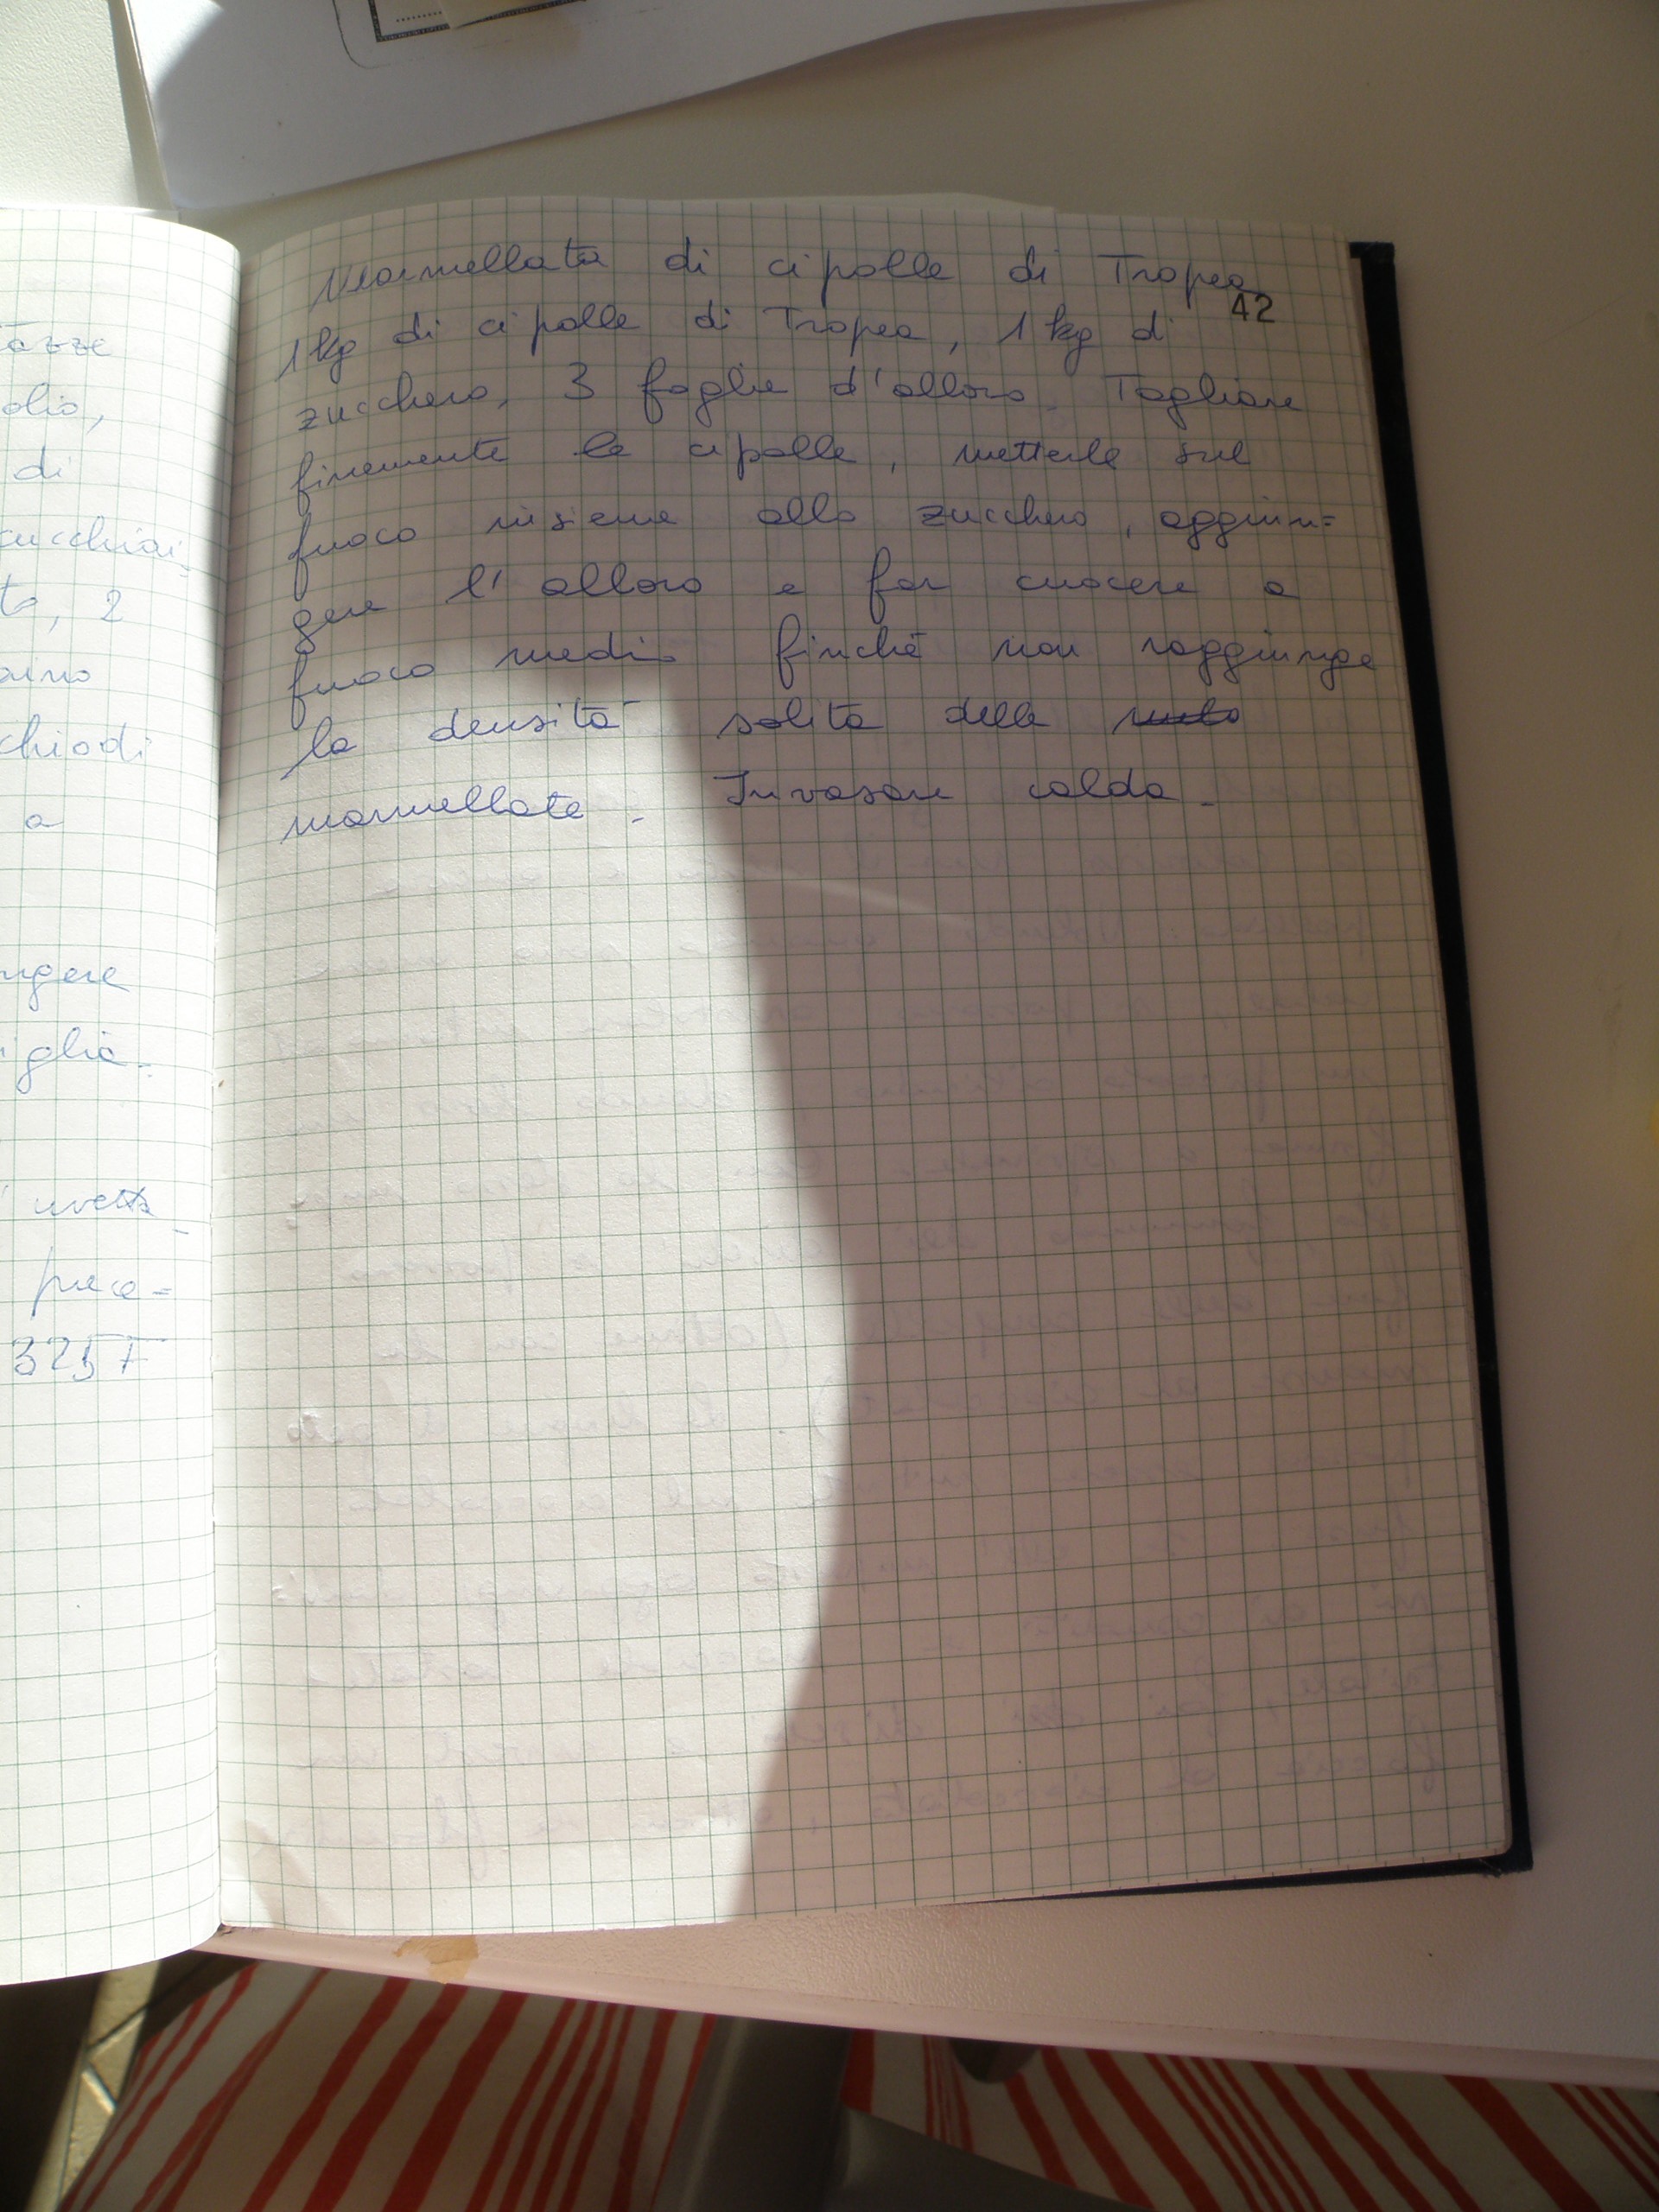 Marmellata di cipolle di Tropea
42
1 kg di cipolle di Tropea, 1 kg di
zucchero, 3 foglie d'alloro. Tagliare
finemente le cipolle, metterle sul
fuoco insieme allo zucchero, aggiun=
gere l'alloro e far cuocere a
fuoco medio finché non raggiunge
la densità solita delle
marmellate. Invasare calda.
tazze
olio,
di
cucchiai
to, 2
chiodi
a
ngere
iglie.
uvetta
prece=
325 F